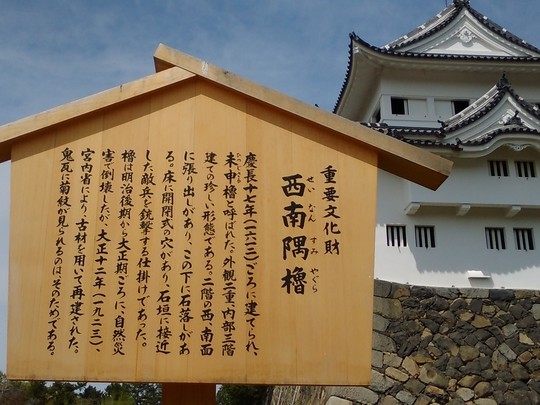 重要文化財
西南隅櫓
せいなんすみやぐら
慶長十七年(一六一二)ごろに建てられ、
未申櫓と呼ばれた。外観二重、内部三階
建ての珍しい形態である。二階の西、南面
に張り出しがあり、この下に石落しがあ
る。床に開閉式の穴があり、石垣に接近
した敵兵を銃撃する仕掛けであった。
櫓は明治後期から大正期ごろに、自然災
害で倒壊したが、大正十二年(一九二三)、
宮内省により、古材を用いて再建された。
鬼瓦に菊紋が見られるのは、そのためである。